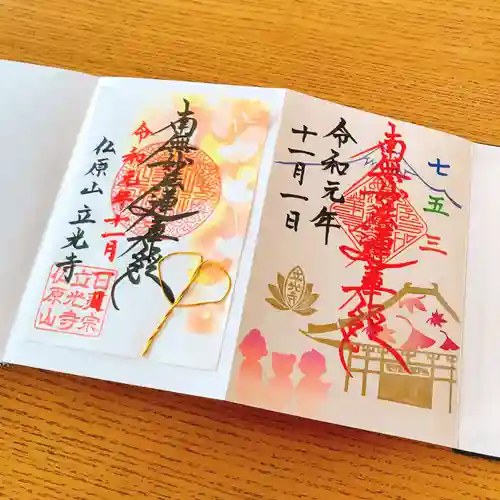 七五三
南無妙法蓮華経
令和元年
十一月一日
南無妙法蓮華経
令和元年十一月
仏原山 立光寺
日蓮宗
立光寺
仏原山